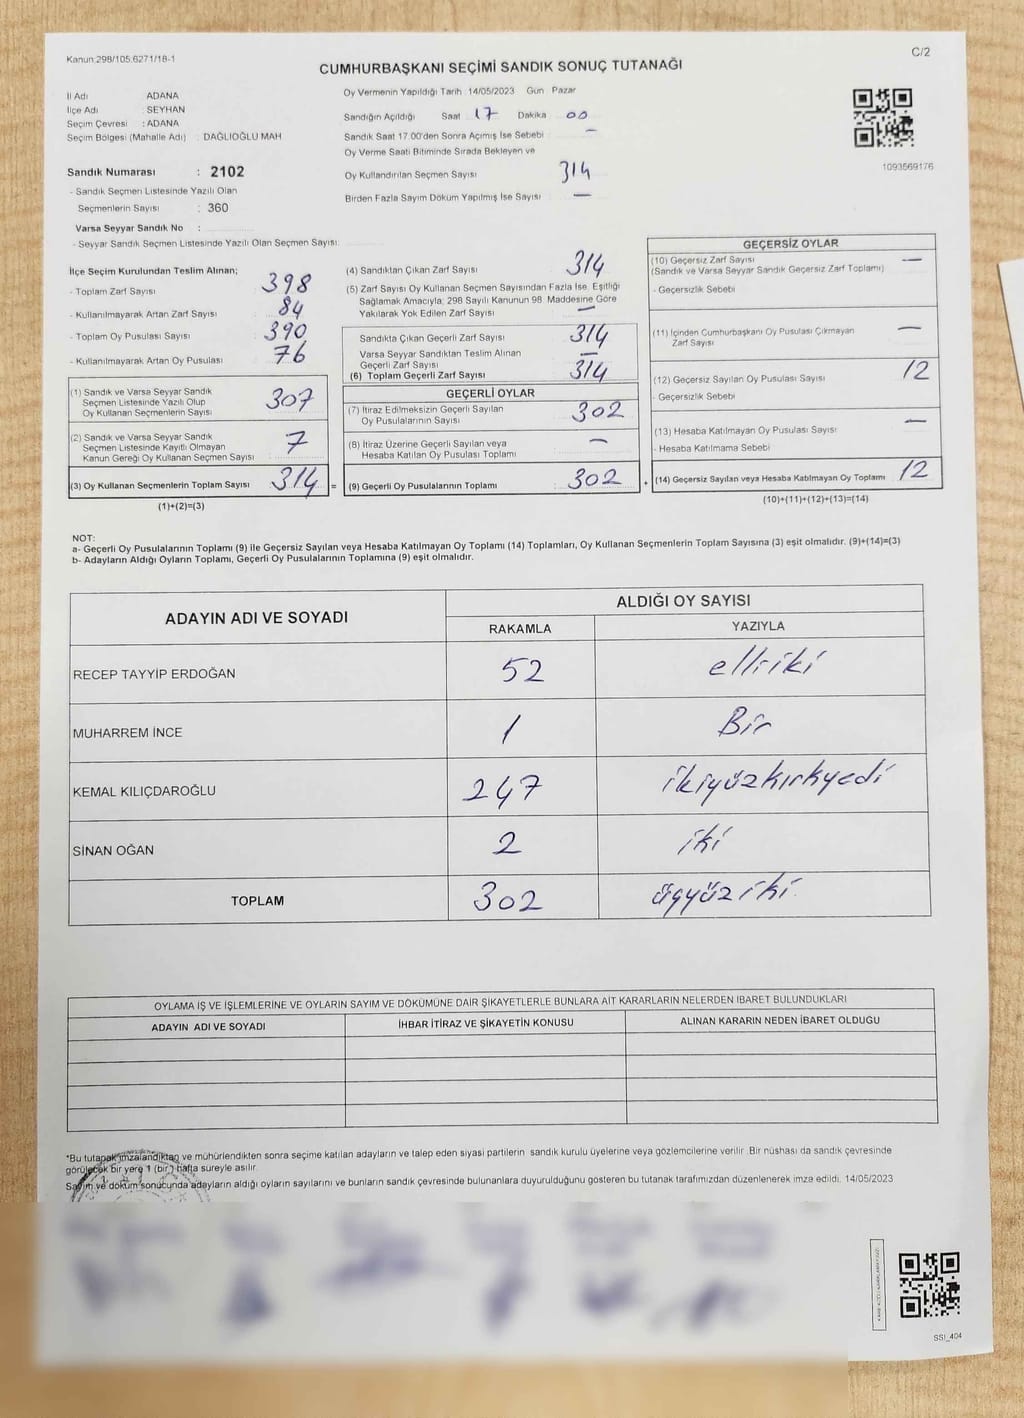 Kanun:298/105.6271/18-1
C/2
CUMHURBAŞKANI SEÇİMİ SANDIK SONUÇ TUTANAĞI
İl Adı : ADANA
İlçe Adı : SEYHAN
Seçim Çevresi : ADANA
Seçim Bölgesi (Mahalle Adı) : DAĞLIOĞLU MAH
Sandık Numarası : 2102
- Sandık Seçmen Listesinde Yazılı Olan
Seçmenlerin Sayısı : 360
Varsa Seyyar Sandık No :
- Seyyar Sandık Seçmen Listesinde Yazılı Olan Seçmen Sayısı:
Oy Vermenin Yapıldığı Tarih :14/05/2023 Gün Pazar
Sandığın Açıldığı Saat 17 Dakika 00
Sandık Saat 17.00'den Sonra Açılmış İse Sebebi : —
Oy Verme Saati Bitiminde Sırada Bekleyen ve
Oy Kullandırılan Seçmen Sayısı 314
Birden Fazla Sayım Döküm Yapılmış İse Sayısı —
1093569176
İlçe Seçim Kurulundan Teslim Alınan;
- Toplam Zarf Sayısı : 398
- Kullanılmayarak Artan Zarf Sayısı : 84
- Toplam Oy Pusulası Sayısı : 390
- Kullanılmayarak Artan Oy Pusulası : 76
(1) Sandık ve Varsa Seyyar Sandık
Seçmen Listesinde Yazılı Olup
Oy Kullanan Seçmenlerin Sayısı : 307
(2) Sandık ve Varsa Seyyar Sandık
Seçmen Listesinde Kayıtlı Olmayan
Kanun Gereği Oy Kullanan Seçmen Sayısı : 7
(3) Oy Kullanan Seçmenlerin Toplam Sayısı : 314 =
(1)+(2)=(3)
(4) Sandıktan Çıkan Zarf Sayısı : 314
(5) Zarf Sayısı Oy Kullanan Seçmen Sayısından Fazla İse, Eşitliği
Sağlamak Amacıyla; 298 Sayılı Kanunun 98. Maddesine Göre
Yakılarak Yok Edilen Zarf Sayısı : —
Sandıkta Çıkan Geçerli Zarf Sayısı : 314
Varsa Seyyar Sandıktan Teslim Alınan
Geçerli Zarf Sayısı : —
(6) Toplam Geçerli Zarf Sayısı : 314
GEÇERLİ OYLAR
(7) İtiraz Edilmeksizin Geçerli Sayılan
Oy Pusulalarının Sayısı : 302
(8) İtiraz Üzerine Geçerli Sayılan veya
Hesaba Katılan Oy Pusulası Toplamı : —
(9) Geçerli Oy Pusulalarının Toplamı : 302 +
GEÇERSİZ OYLAR
(10) Geçersiz Zarf Sayısı : —
(Sandık ve Varsa Seyyar Sandık Geçersiz Zarf Toplamı)
- Geçersizlik Sebebi
(11) İçinden Cumhurbaşkanı Oy Pusulası Çıkmayan
Zarf Sayısı : —
(12) Geçersiz Sayılan Oy Pusulası Sayısı : 12
- Geçersizlik Sebebi
(13) Hesaba Katılmayan Oy Pusulası Sayısı : —
- Hesaba Katılmama Sebebi
(14) Geçersiz Sayılan veya Hesaba Katılmayan Oy Toplamı : 12
(10)+(11)+(12)+(13)=(14)
NOT:
a- Geçerli Oy Pusulalarının Toplamı (9) ile Geçersiz Sayılan veya Hesaba Katılmayan Oy Toplamı (14) Toplamları, Oy Kullanan Seçmenlerin Toplam Sayısına (3) eşit olmalıdır. (9)+(14)=(3)
b- Adayların Aldığı Oyların Toplamı, Geçerli Oy Pusulalarının Toplamına (9) eşit olmalıdır.
ADAYIN ADI VE SOYADI
ALDIĞI OY SAYISI
RAKAMLA YAZIYLA
RECEP TAYYİP ERDOĞAN 52 elliiki
MUHARREM İNCE 1 Bir
KEMAL KILIÇDAROĞLU 247 ikiyüzkırkyedi
SİNAN OĞAN 2 iki
TOPLAM 302 üçyüziki
OYLAMA İŞ VE İŞLEMLERİNE VE OYLARIN SAYIM VE DÖKÜMÜNE DAİR ŞİKAYETLERLE BUNLARA AİT KARARLARIN NELERDEN İBARET BULUNDUKLARI
ADAYIN ADI VE SOYADI İHBAR İTİRAZ VE ŞİKAYETİN KONUSU ALINAN KARARIN NEDEN İBARET OLDUĞU
*Bu tutanak imzalandıktan ve mühürlendikten sonra seçime katılan adayların ve talep eden siyasi partilerin sandık kurulu üyelerine veya gözlemcilerine verilir. Bir nüshası da sandık çevresinde
görülecek bir yere 1 (bir) hafta süreyle asılır.
Sayım ve döküm sonucunda adayların aldığı oyların sayılarını ve bunların sandık çevresinde bulunanlara duyurulduğunu gösteren bu tutanak tarafımızdan düzenlenerek imza edildi. 14/05/2023
SSİ_404